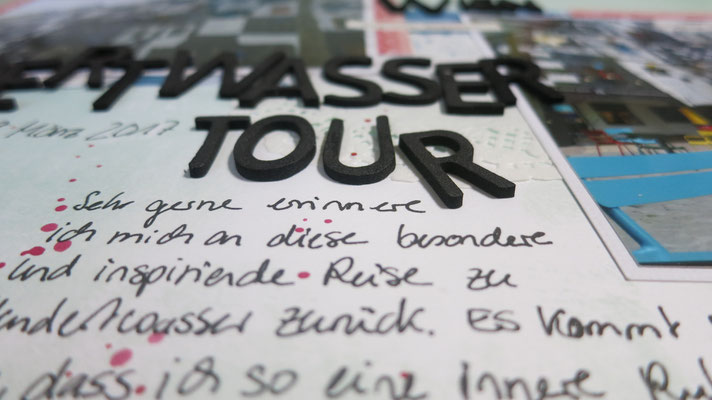 ERTWASSER
TOUR
März 2017
Sehr gerne erinnere
ich mich an diese besondere
und inspirierende Reise zu
undertwasser zurück. Es kommt
dass ich so eine innere Ru